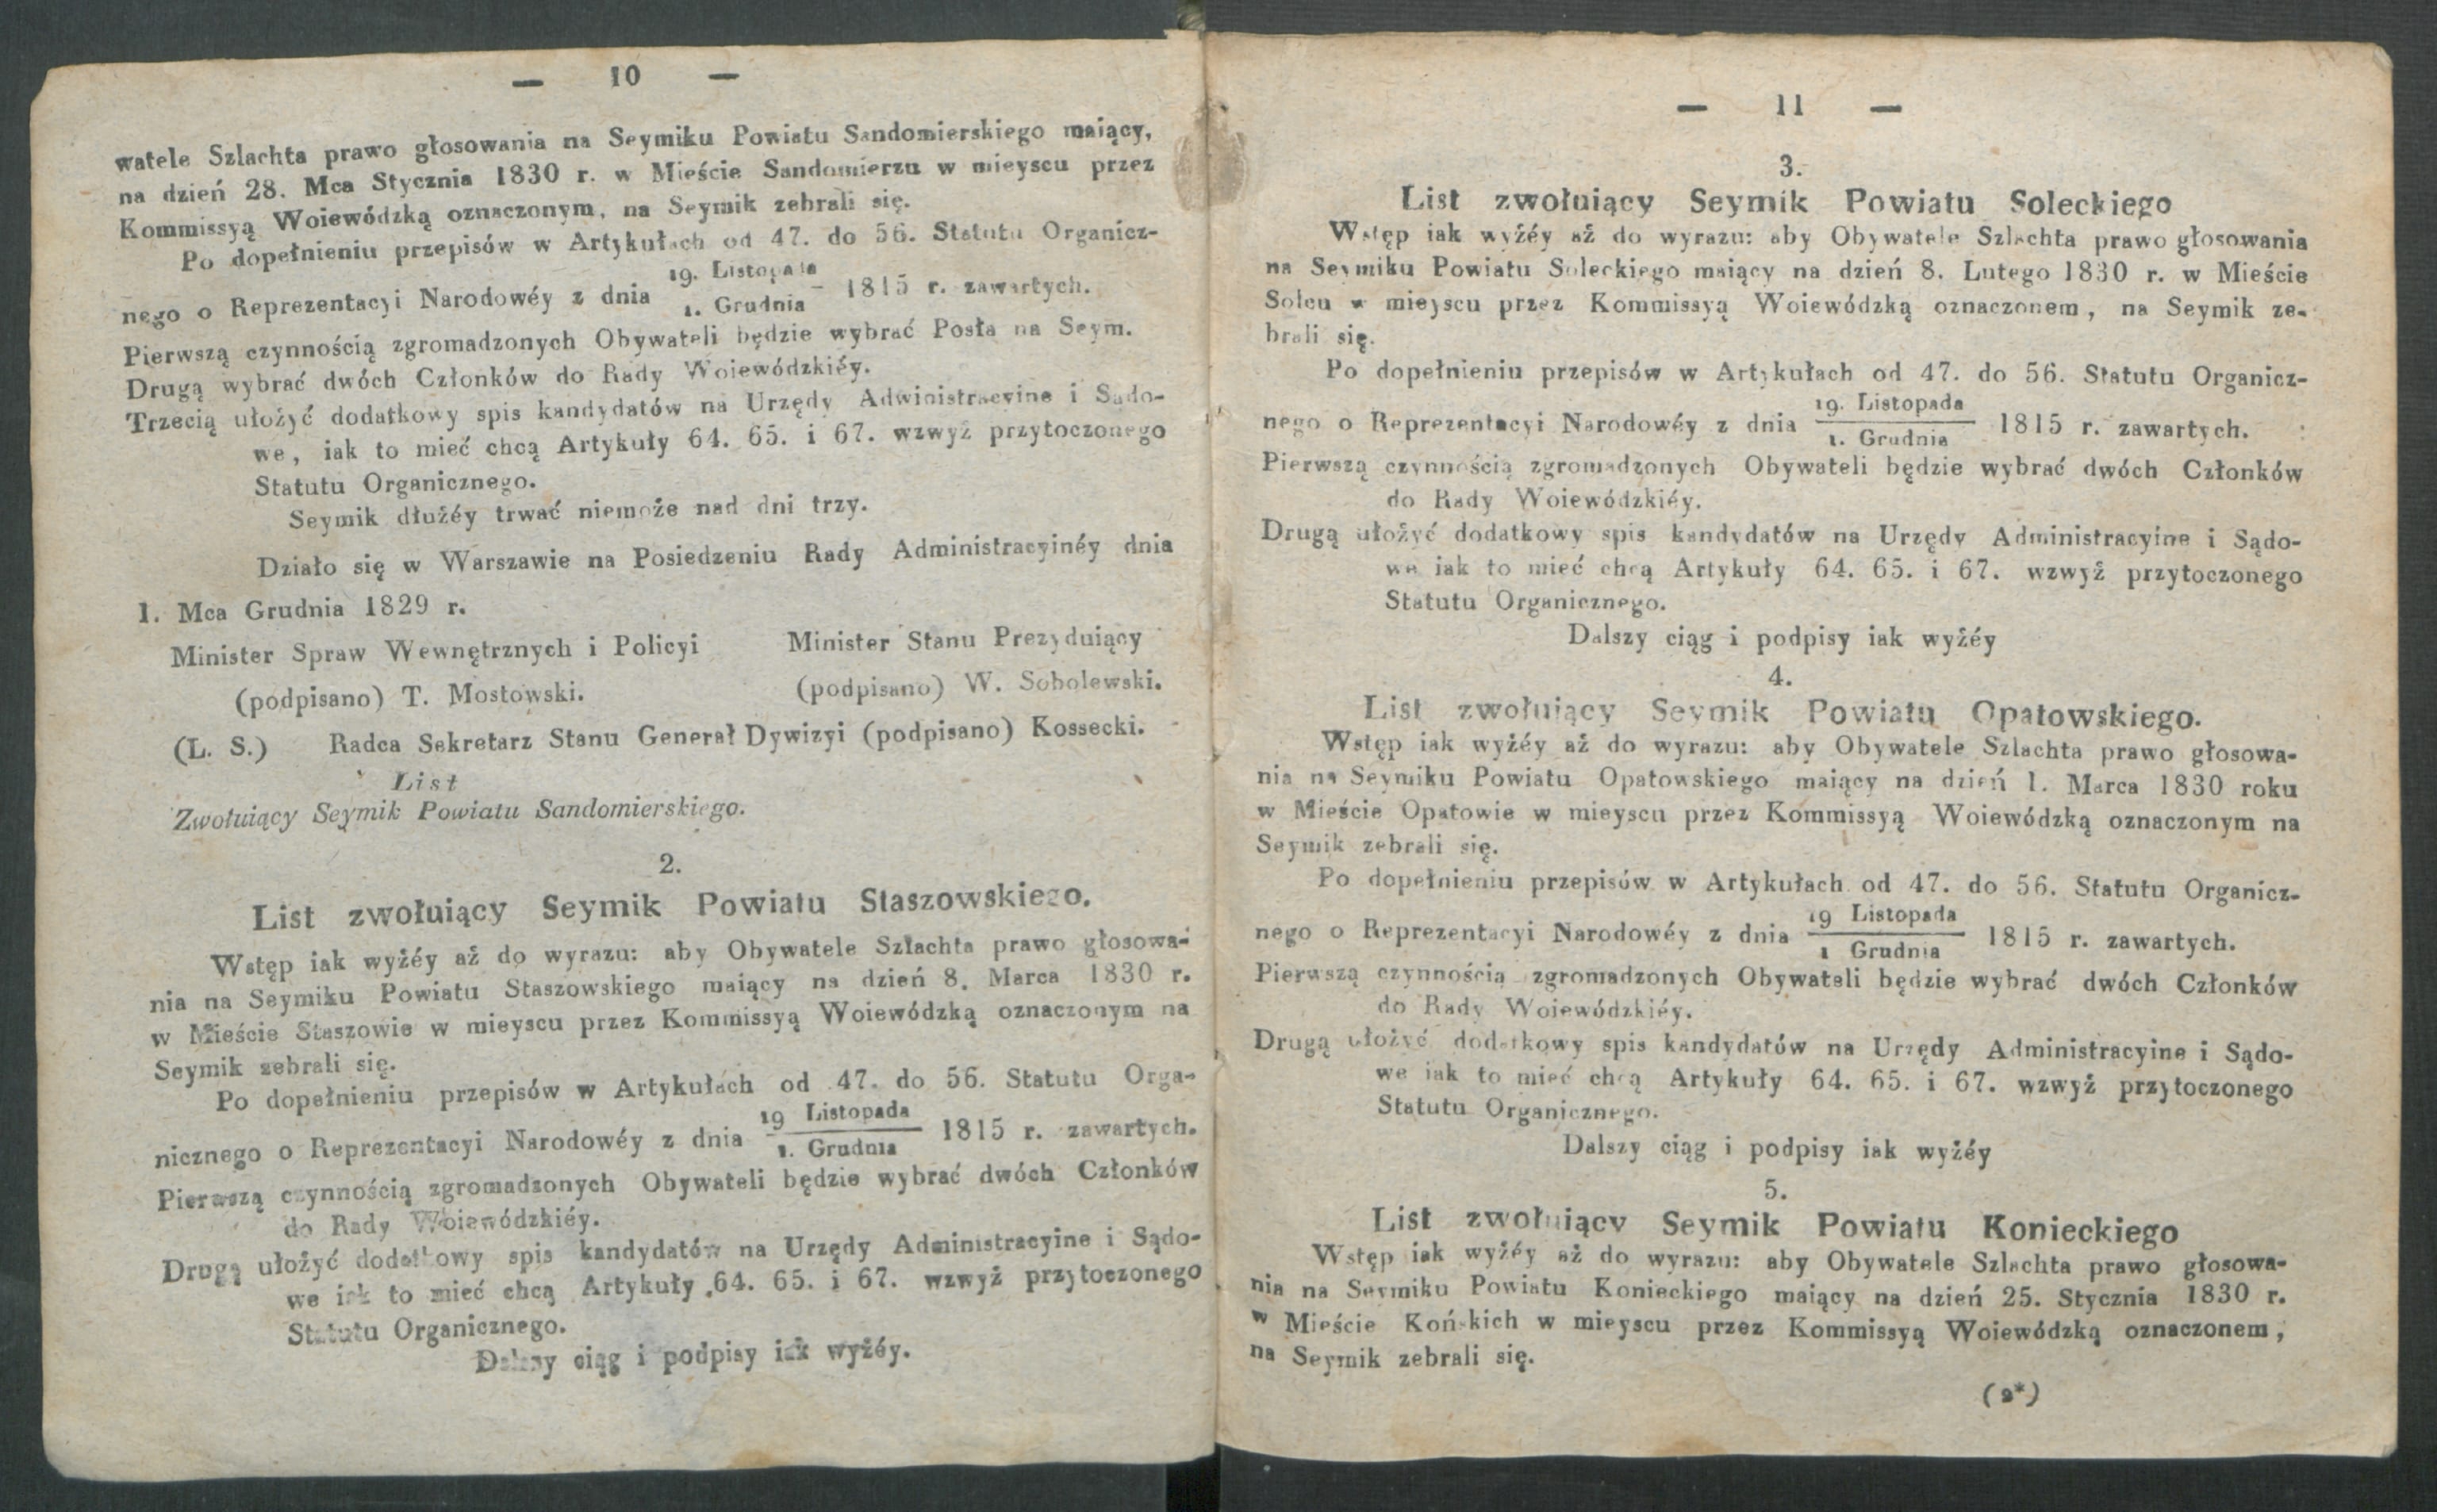 — 10 —
watele Szlachta prawo głosowania na Seymiku Powiatu Sandomierskiego maiący,
na dzień 28. Mca Stycznia 1830 r. w Mieście Sandomierzu w mieyscu przez
Kommissyą Woiewódzką oznaczonym, na Seymik zebrali się.
Po dopełnieniu przepisów w Artykułach od 47. do 56. Statutu Organicz-
nego o Reprezentacyi Narodowéy z dnia 19. Listopada / 1. Grudnia 1815 r. zawartych.
Pierwszą czynnością zgromadzonych Obywateli będzie wybrać Posła na Seym.
Drugą wybrać dwóch Członków do Rady Woiewódzkiéy.
Trzecią ułożyć dodatkowy spis kandydatów na Urzędy Adwinistracyine i Sado-
we, iak to mieć chcą Artykuły 64. 65. i 67. wzwyż przytoczonego
Statutu Organicznego.
Seymik dłużéy trwać niemoże nad dni trzy.
Działo się w Warszawie na Posiedzeniu Rady Administracyinéy dnia
1. Mca Grudnia 1829 r.
Minister Spraw Wewnętrznych i Policyi Minister Stanu Prezyduiący
(podpisano) T. Mostowski. (podpisano) W. Sobolewski.
(L. S.) Radca Sekretarz Stanu Generał Dywizyi (podpisano) Kossecki.
List
Zwołuiący Seymik Powiatu Sandomierskiego.
2.
List zwołuiący Seymik Powiatu Staszowskiego.
Wstęp iak wyżéy aż do wyrazu: aby Obywatele Szlachta prawo głosowa-
nia na Seymiku Powiatu Staszowskiego maiący na dzień 8. Marca 1830 r.
w Mieście Staszowie w mieyscu przez Kommissyą Woiewódzką oznaczonym na
Seymik zebrali się.
Po dopełnieniu przepisów w Artykułach od 47. do 56. Statutu Orga-
nicznego o Reprezentacyi Narodowéy z dnia 19 Listopada / 1. Grudnia 1815 r. zawartych.
Pierwszą czynnością zgromadzonych Obywateli będzie wybrać dwóch Członków
do Rady Woiewódzkiéy.
Drugą ułożyć dodatkowy spis kandydatów na Urzędy Administracyine i Sądo-
we iak to mieć chcą Artykuły 64. 65. i 67. wzwyż przytoczonego
Statutu Organicznego.
Dalszy ciąg i podpisy iak wyżéy.
— 11 —
3.
List zwołuiący Seymik Powiatu Soleckiego
Wstęp iak wyżéy aż do wyrazu: aby Obywatele Szlachta prawo głosowania
na Seymiku Powiatu Soleckiego maiący na dzień 8. Lutego 1830 r. w Mieście
Solcu w mieyscu przez Kommissyą Woiewódzką oznaczonem, na Seymik ze-
brali się.
Po dopełnieniu przepisów w Artykułach od 47. do 56. Statutu Organicz-
nego o Reprezentacyi Narodowéy z dnia 19. Listopada / 1. Grudnia 1815 r. zawartych.
Pierwszą czynnością zgromadzonych Obywateli będzie wybrać dwóch Członków
do Rady Woiewódzkiéy.
Drugą ułożyć dodatkowy spis kandydatów na Urzędy Administracyine i Sądo-
we iak to mieć chcą Artykuły 64. 65. i 67. wzwyż przytoczonego
Statutu Organicznego.
Dalszy ciąg i podpisy iak wyżéy
4.
List zwołuiący Seymik Powiatu Opatowskiego.
Wstęp iak wyżéy aż do wyrazu: aby Obywatele Szlachta prawo głosowa-
nia na Seymiku Powiatu Opatowskiego maiący na dzień 1. Marca 1830 roku
w Mieście Opatowie w mieyscu przez Kommissyą Woiewódzką oznaczonym na
Seymik zebrali się.
Po dopełnieniu przepisów w Artykułach od 47. do 56. Statutu Organicz-
nego o Reprezentacyi Narodowéy z dnia 19 Listopada / 1 Grudnia 1815 r. zawartych.
Pierwszą czynnością zgromadzonych Obywateli będzie wybrać dwóch Członków
do Rady Woiewódzkiéy.
Drugą ułożyć dodatkowy spis kandydatów na Urzędy Administracyine i Sądo-
we iak to mieć chcą Artykuły 64. 65. i 67. wzwyż przytoczonego
Statutu Organicznego.
Dalszy ciąg i podpisy iak wyżéy
5.
List zwołuiący Seymik Powiatu Konieckiego
Wstęp iak wyżéy aż do wyrazu: aby Obywatele Szlachta prawo głosowa-
nia na Seymiku Powiatu Konieckiego maiący na dzień 25. Stycznia 1830 r.
w Mieście Końskich w mieyscu przez Kommissyą Woiewódzką oznaczonem,
na Seymik zebrali się.
(2*)